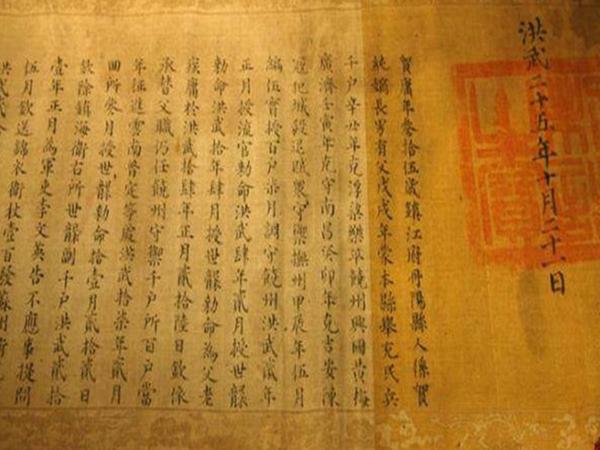 洪武二十五年十月二十一日
賀庸年叁拾伍歲鎮江府丹陽縣人係賀
純嫡長男有父戊戌年蒙本縣舉充民兵
千户辛丑年克浮梁樂平饒州興國黄梅
廣濟壬寅年克守南昌癸卯年克吉安陳
寇犯城殺退賊衆守禦撫州甲辰年伍月
編伍實授百户柒月調守饒州洪武貳年
正月授流官勅命洪武肆年貳月授世襲
勅命洪武拾年肆月授世襲勅命為父老
疾庸於洪武拾肆年正月貳拾陸日欽依
承替父職仍任饒州守禦千户所百户當
年征進雲南普定等處洪武拾柒年貳月
回所柒月授世襲勅命拾壹月貳拾貳日
欽除鎮海衛右所世襲副千户洪武貳拾
壹年正月為軍吏李文英告不應事提問
伍月欽送錦衣衛杖壹百發蘇州衛
洪武貳